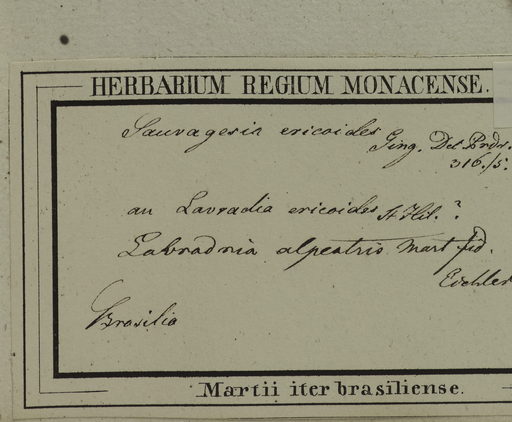 HERBARIUM REGIUM MONACENSE.
Sauvagesia ericoides Ging. Dec Prdr.
316./5.
an Lavradia ericoides St Hil. ?
alpestris Mart fid.
Eichler
Brasilia
Martii iter brasiliense.